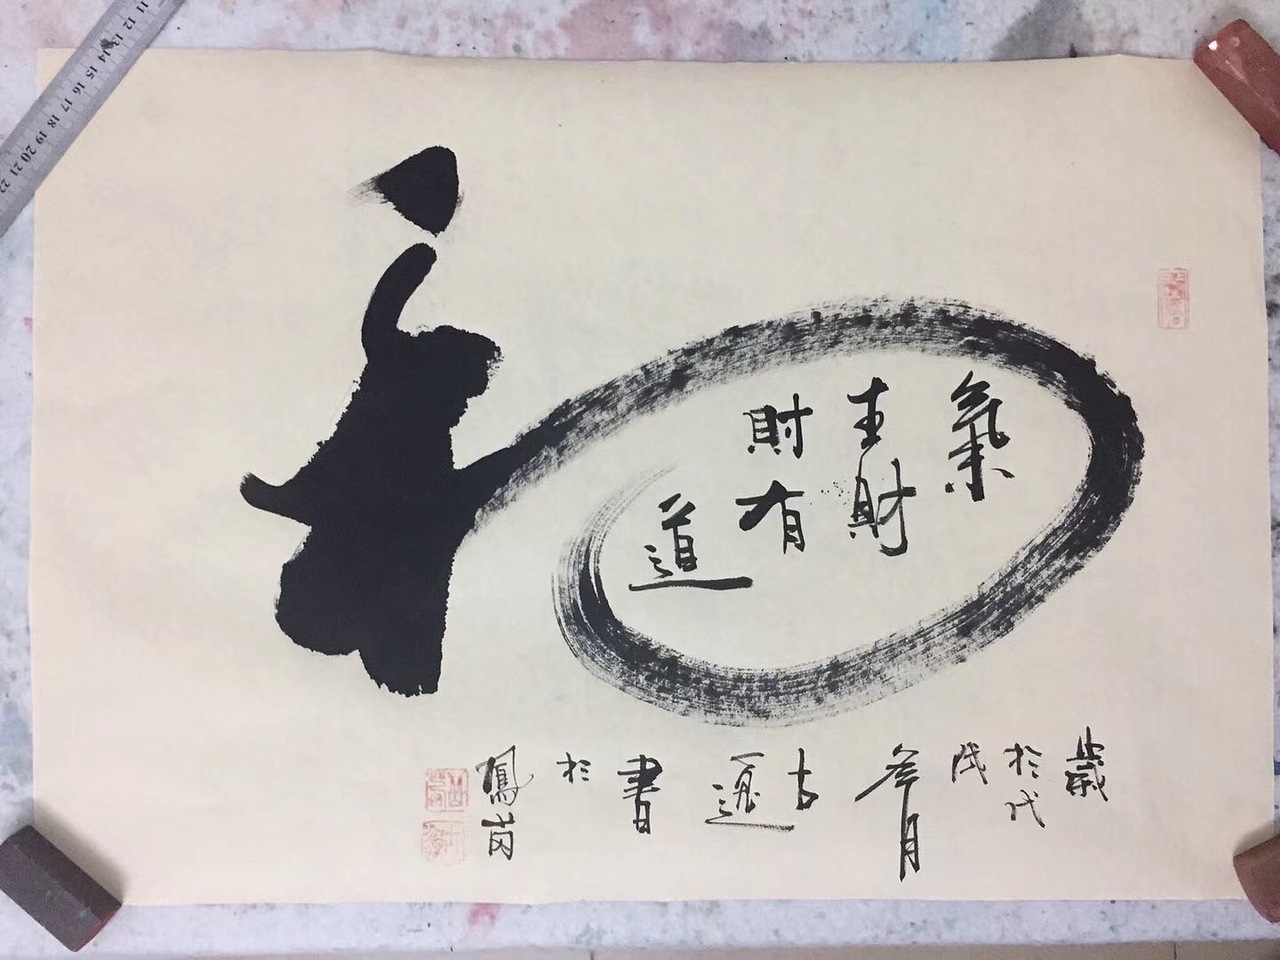 和
氣
生財
財有
道
歲
於戊
戌
冬月
古
書
於
鳳
11 12 13 14 15 16 17 18 19 20 21 22